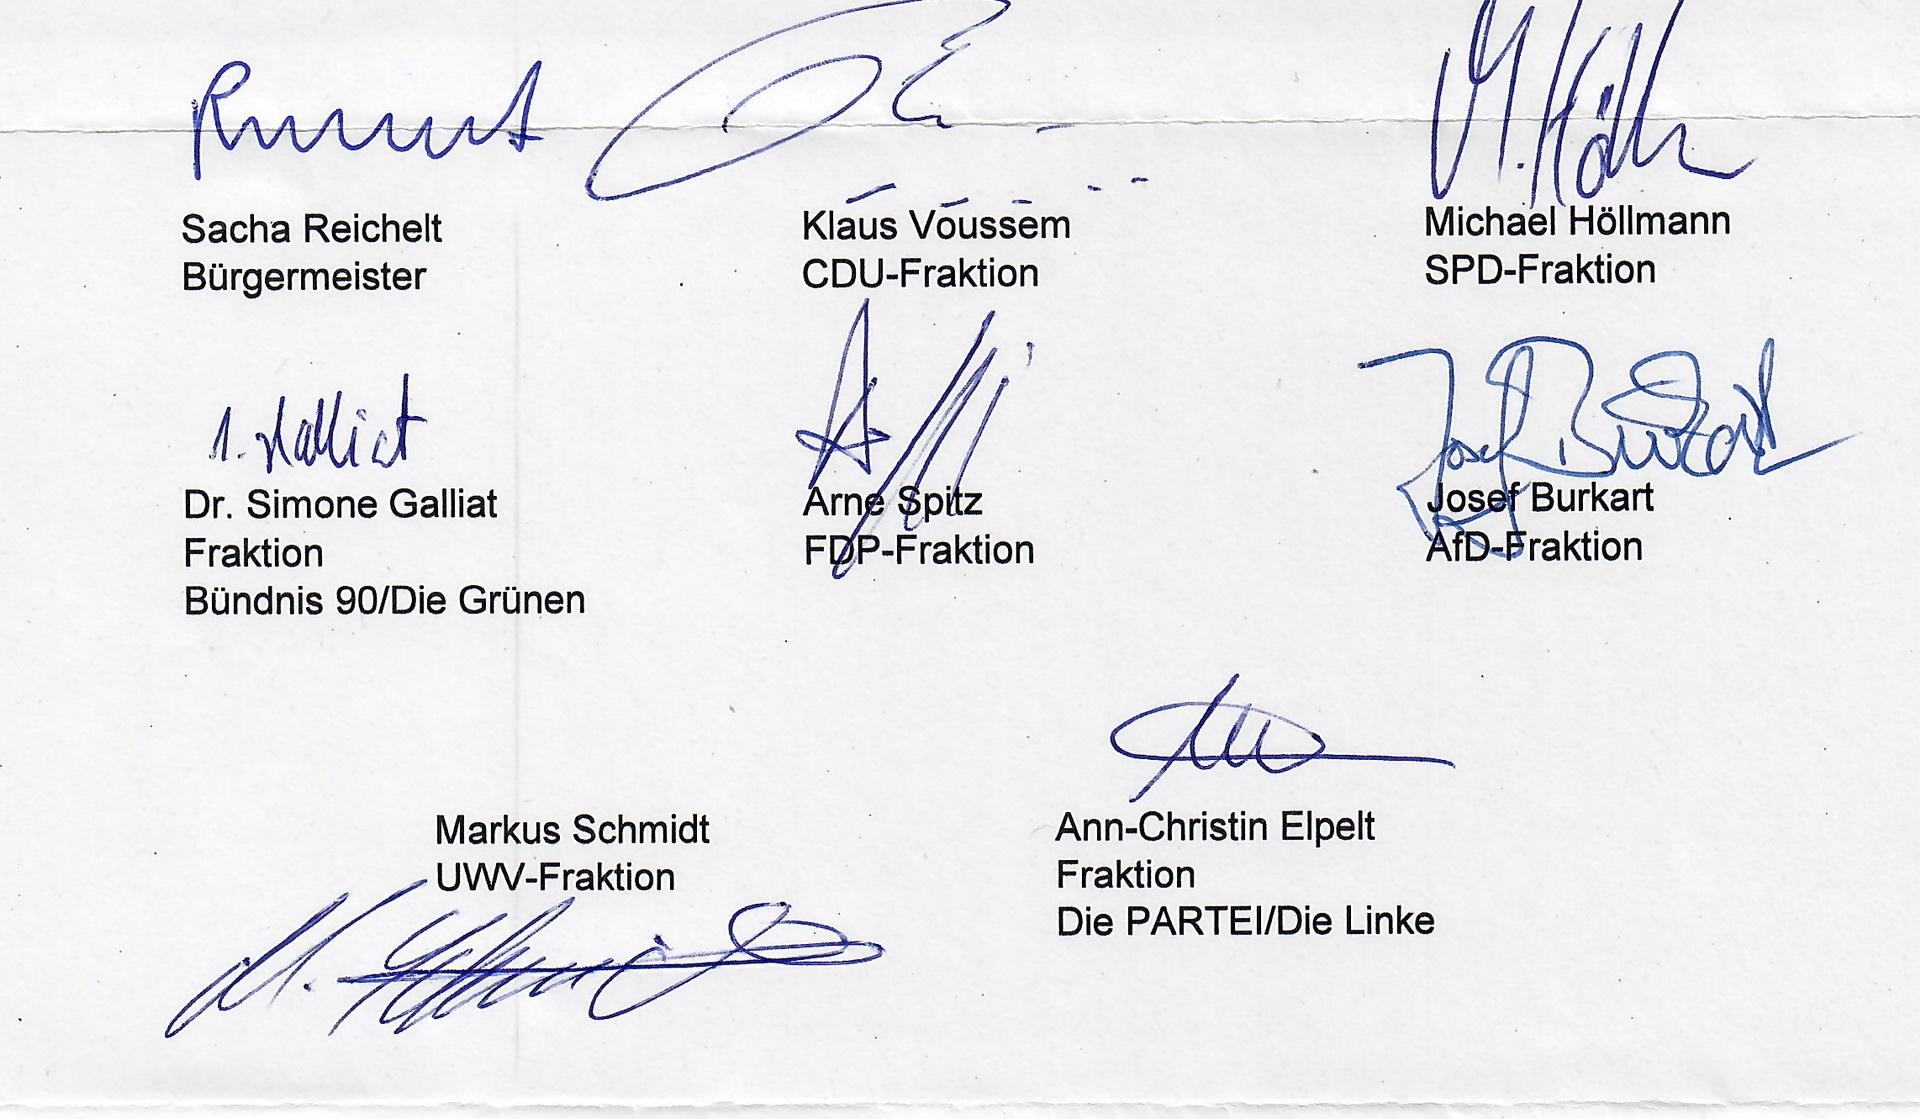 Sacha Reichelt
Bürgermeister
Klaus Voussem
CDU-Fraktion
M. Höll
Michael Höllmann
SPD-Fraktion
Dr. Simone Galliat
Fraktion
Bündnis 90/Die Grünen
Arne Spitz
FDP-Fraktion
Josef Burkart
Josef Burkart
AfD-Fraktion
Markus Schmidt
UWV-Fraktion
Ann-Christin Elpelt
Fraktion
Die PARTEI/Die Linke